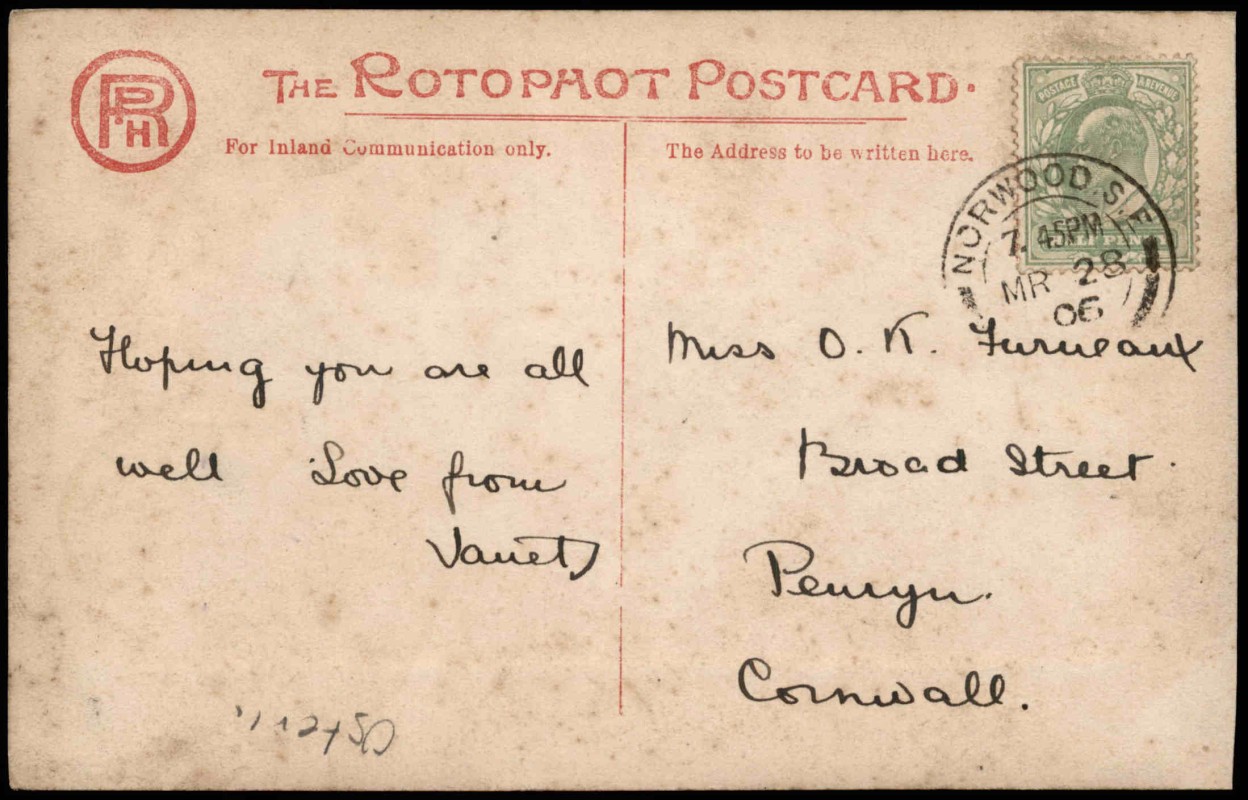 RPH
THE ROTOPHOT POSTCARD.
For Inland Communication only.
The Address to be written here.
POSTAGE & REVENUE
NORWOOD. S.E
7. 45PM
MR 28
06
Hoping you are all
well Love from
Janet
Miss O. K. Furneaux
Broad Street.
Penryn.
Cornwall.